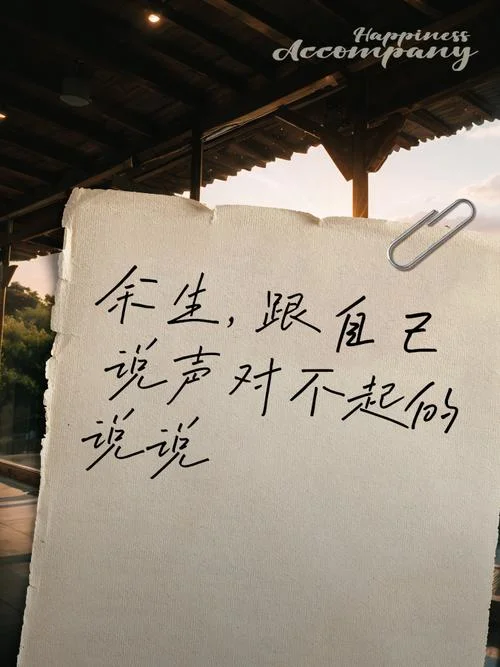 Happiness
Accompany
余生,跟自己
说声对不起的
说说